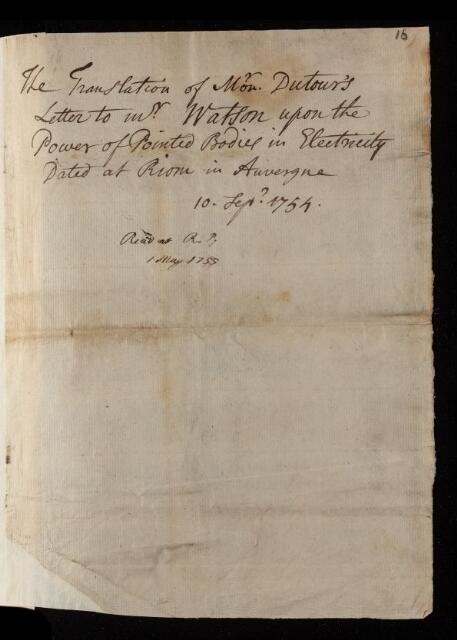 16
The Translation of Mon. Dutour's
Letter to mr Watson upon the
Power of Pointed Bodies in Electricity
Dated at Riom in Auvergne
10. Sepr. 1754.
Read at R. S.
1 May 1755